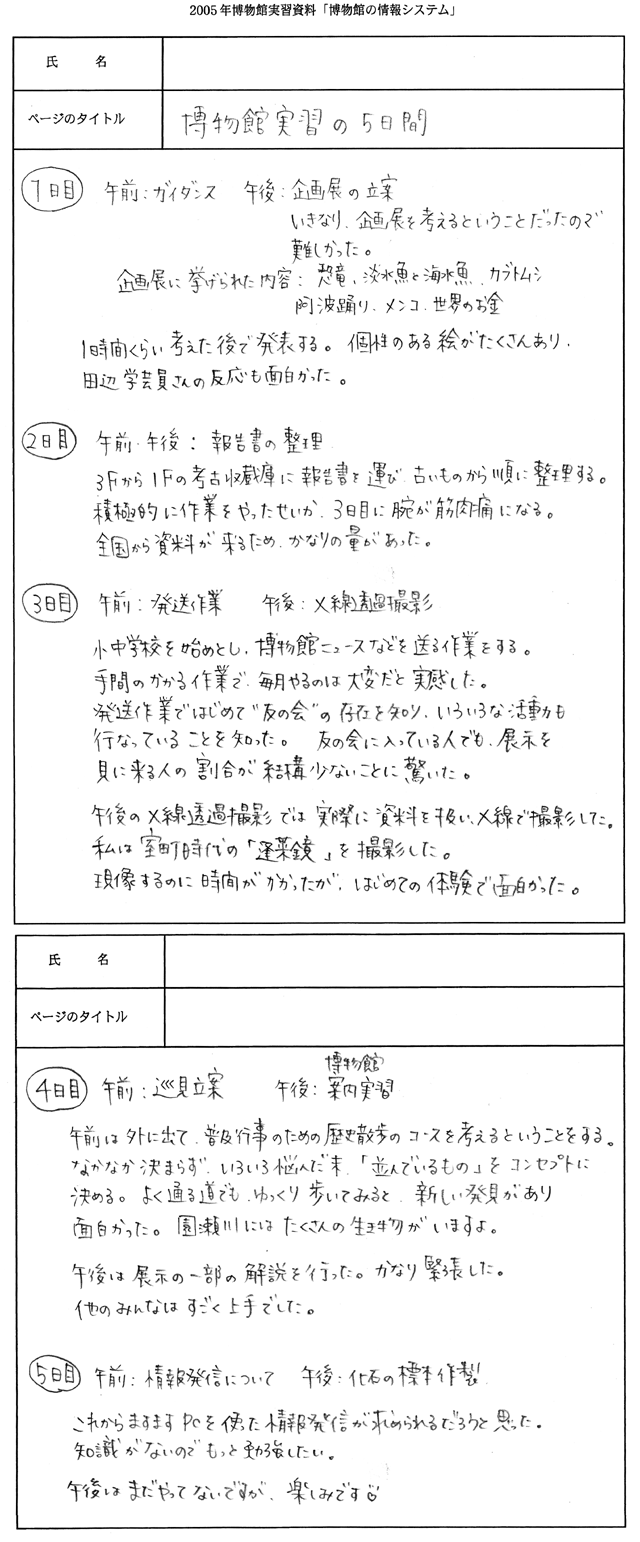 2005年博物館実習資料「博物館の情報システム」
氏　名
ページのタイトル　博物館実習の5日間
1日目　午前：ガイダンス　午後：企画展の立案
いきなり、企画展を考えるということだったので
難しかった。
企画展に挙げられた内容：恐竜、淡水魚と海水魚、カブトムシ
阿波踊り、メンコ、世界のお金
1時間くらい考えた後で発表する。個性のある絵がたくさんあり、
田辺学芸員さんの反応も面白かった。
2日目　午前・午後：報告書の整理
3Fから1Fの考古収蔵庫に報告書を運び、古いものから順に整理する。
積極的に作業をやったせいか、3日目に腕が筋肉痛になる。
全国から資料が来るため、かなりの量があった。
3日目　午前：発送作業　午後：X線透過撮影
小中学校を始めとし、博物館ニュースなどを送る作業をする。
手間のかかる作業で、毎月やるのは大変だと実感した。
発送作業ではじめて"友の会"の存在を知り、いろいろな活動も
行なっていることを知った。友の会に入っている人でも、展示を
見に来る人の割合が結構少ないことに驚いた。
午後のX線透過撮影では実際に資料を扱い、X線で撮影した。
私は室町時代の「蓬莱鏡」を撮影した。
現像するのに時間がかかったが、はじめての体験で面白かった。
氏　名
ページのタイトル
4日目　午前：巡見立案　午後：博物館案内実習
午前は外に出て、普及行事のための歴史散歩のコースを考えるということをする。
なかなか決まらず、いろいろ悩んだ末、「並んでいるもの」をコンセプトに
決める。よく通る道でも、ゆっくり歩いてみると、新しい発見があり
面白かった。園瀬川にはたくさんの生き物がいますよ。
午後は展示の一部の解説を行った。かなり緊張した。
他のみんなはすごく上手でした。
5日目　午前：情報発信について　午後：化石の標本作製
これからますますPCを使った情報発信が求められるだろうと思った。
知識がないのでもっと勉強したい。
午後はまだやってないですが、楽しみです♡